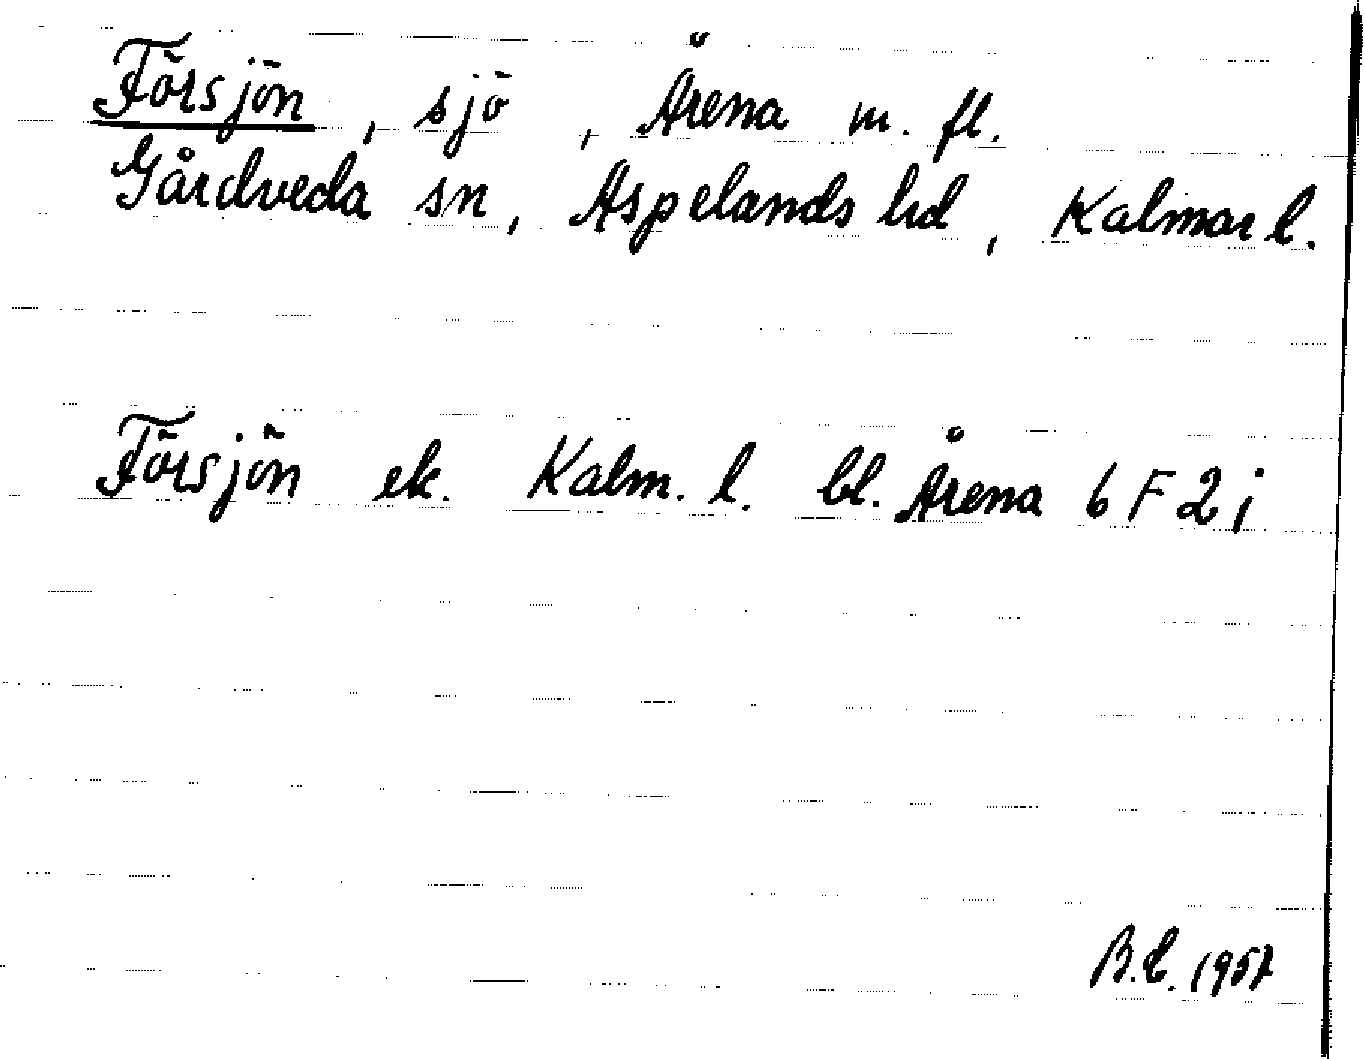 Försjön, sjö, Årena m. fl.
Gårdveda sn, Aspelands hd, Kalmar l.
Försjön ek. Kalm. l. bl. Årena 6 F 2 j
B.L. 1957